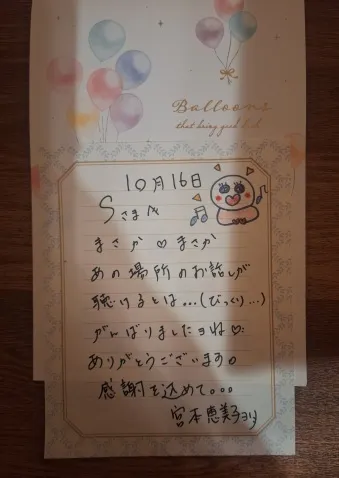 Balloons
that bring good luck
10月16日
Sさまへ
まさか♡まさか
あの場所のお話しが
聴けるとは...(びっくり...)
がんばりましたヨね♡
ありがとうございます。
感謝を込めて。。。
宮本恵美子ヨリ